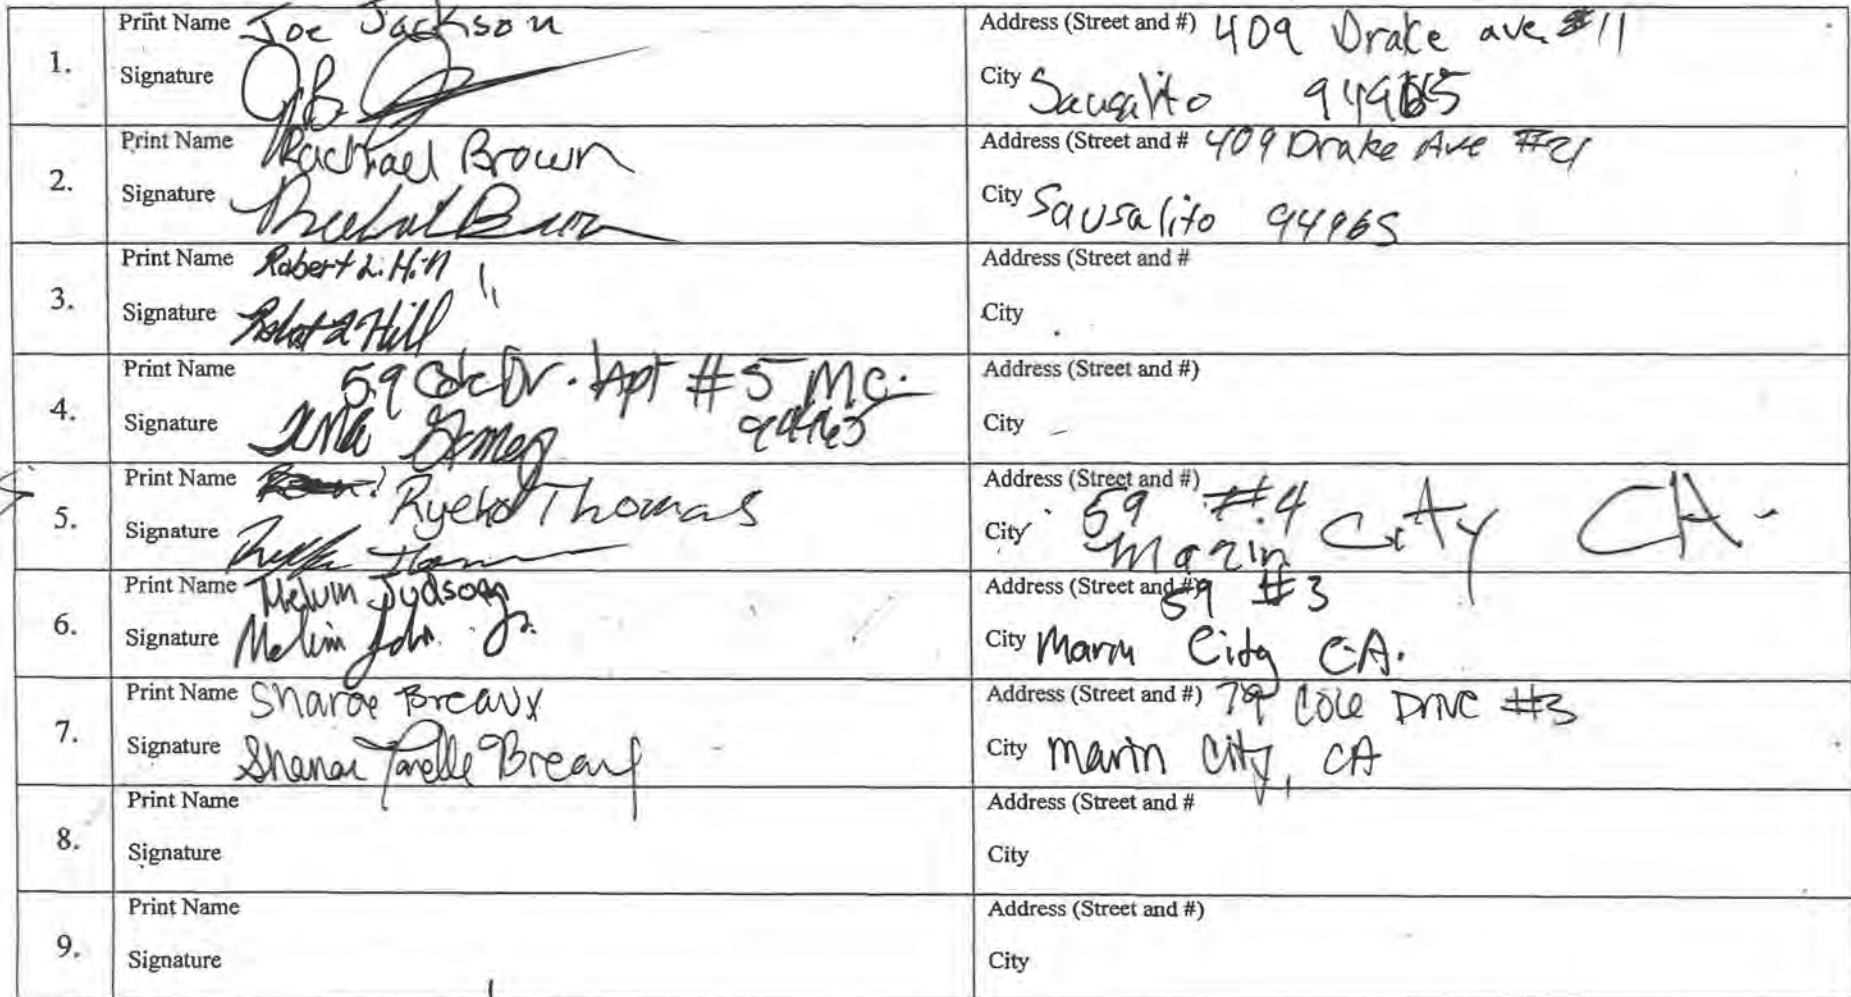 1.
Print Name Joe Jackson
Signature
Address (Street and #) 409 Drake ave. #11
City Sausalito 94965
2.
Print Name Rachael Brown
Signature Rachael Brown
Address (Street and # 409 Drake Ave #21
City Sausalito 94965
3.
Print Name Robert L. Hill
Signature Robert L Hill
Address (Street and #
City
4.
Print Name 59 Cole Dr. Apt #5 MC.
Signature 94965
Address (Street and #)
City
5.
Print Name Thomas
Signature
Address (Street and #) 59 #4
City Marin City CA.
6.
Print Name Melvin Judson
Signature Melvin Jr.
Address (Street and #) 59 #3
City Marin City CA.
7.
Print Name Sharae Breaux
Signature Breaux
Address (Street and #) 79 Cole Drive #3
City Marin City, CA
8.
Print Name
Signature
Address (Street and #
City
9.
Print Name
Signature
Address (Street and #)
City